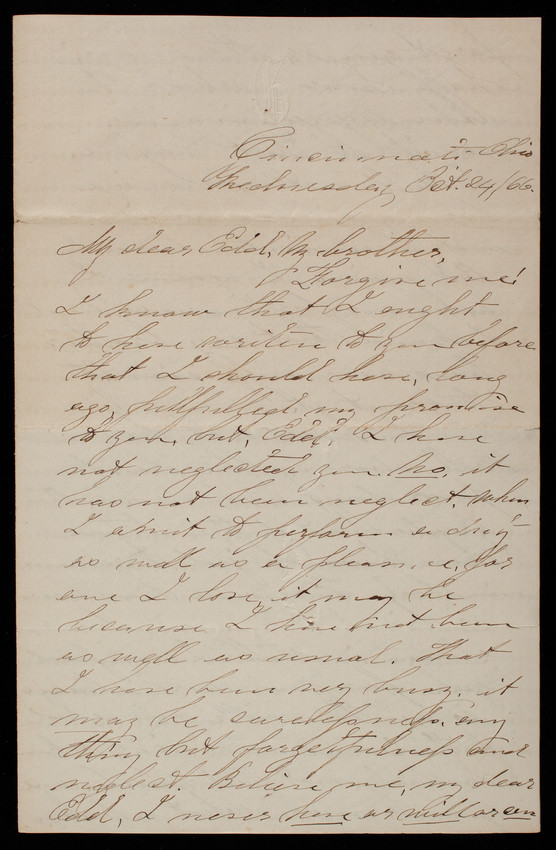 Cincinnati Ohio
Wednesday, Oct. 24/66.
My dear Edd, My brother,
Forgive me!
I know that I ought
to have writen to you before
that I should have, long
ago, fullfulled my promise
to you, but, Edd, I have
not neglected you. No, it
has not been neglect. When
I omit to perform a duty
as well as a pleasure, for
one I love, it may be
because I have not been
as well as usual. That
I have been very busy. it
may be carelessness. any
thing but forgetfulness and
neglect. Believe me, my dear
Edd, I never have or will or can